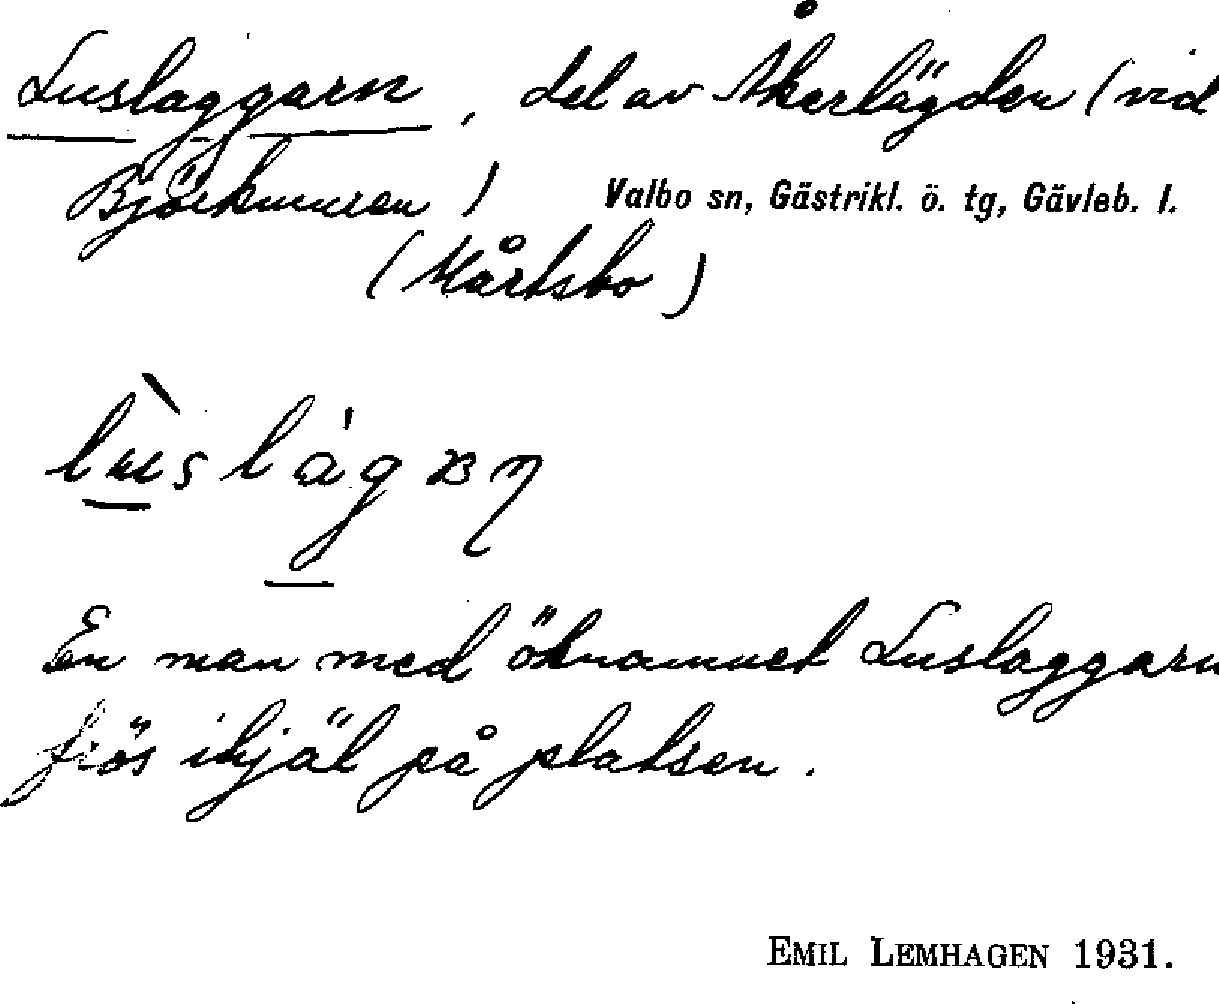 Luslaggarn, del av Åkerlägden (vid
Björkmuren) Valbo sn, Gästrikl. ö. tg, Gävleb. l.
(Mårtsbo)
En man med öknamnet Luslaggarn
frös ihjäl på platsen.
EMIL LEMHAGEN 1931.